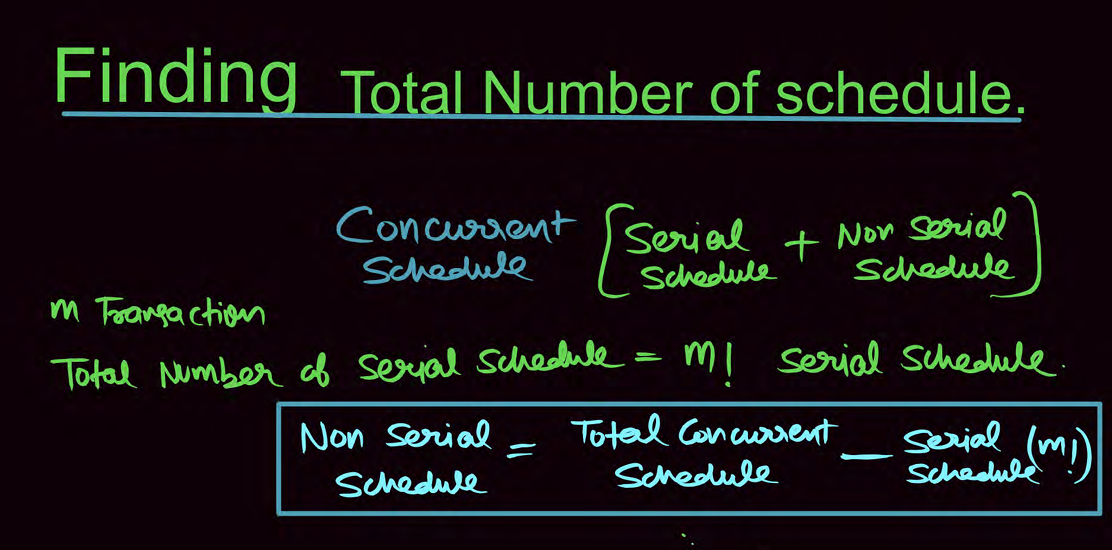 Finding Total Number of schedule.
Concurrent Schedule [Serial Schedule + Non Serial Schedule]
m Transaction
Total Number of serial schedule = m! serial schedule.
Non Serial Schedule = Total Concurrent Schedule — Serial Schedule (m!)